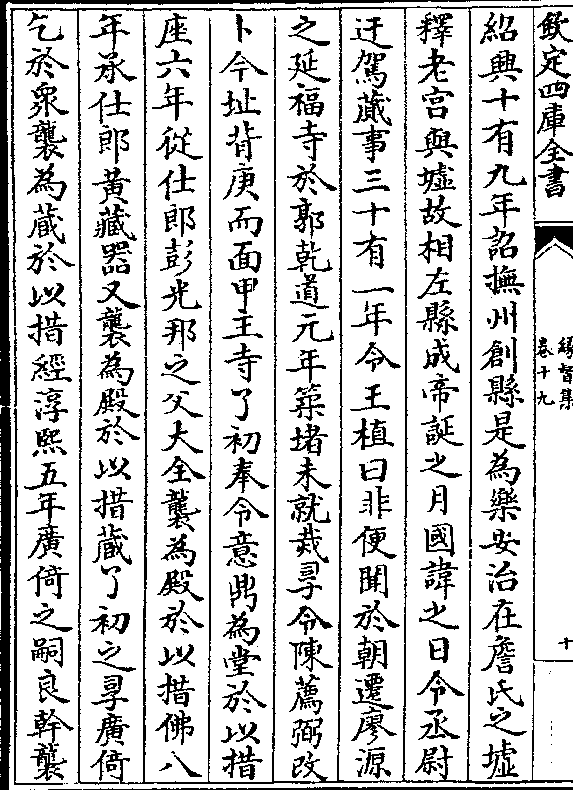 欽定四庫全書
緣督集
卷十九
十
紹興十有九年詔撫州創縣是為樂安治在詹氏之墟
釋老宫與墟故相左縣成帝誕之月國諱之日令丞尉
迂駕蕆事三十有一年令王植曰非便聞於朝遷廖源
之延福寺於郭乾道元年築堵未就裁尋令陳薦弼改
卜今址背庚而面甲主寺了初奉令意鼎為堂於以措
座六年從仕郎彭光邦之父大全襲為殿於以措佛八
年承仕郎黃藏器又襲為殿於以措蔵了初之尋廣倚
乞於衆襲為蔵於以措經淳熙五年廣倚之嗣良幹襲